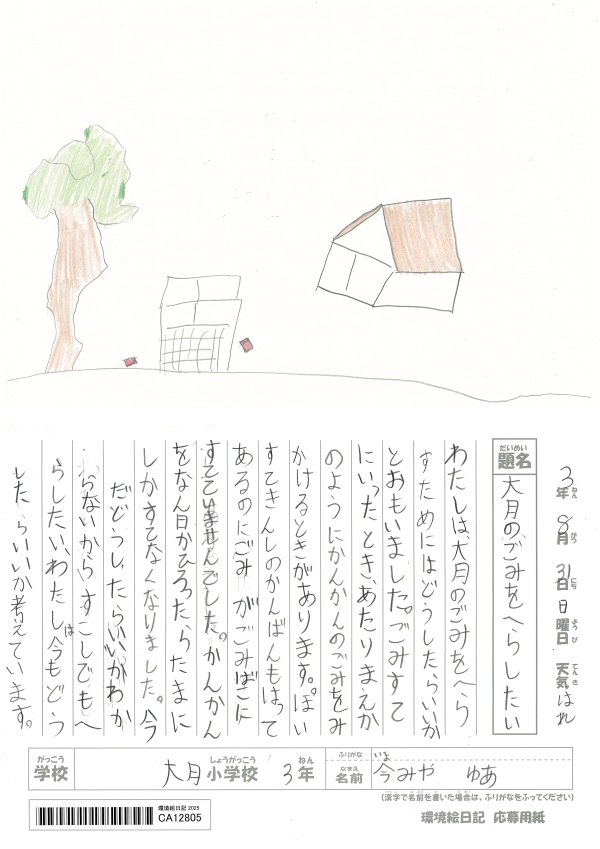 3年ねん 8月がつ 31日にち 日曜日ようび 天気てんき はれ
だいめい
題名 大月のごみをへらしたい
わたしは、大月のごみをへら
すためにはどうしたらいいか
とおもいました。ごみすて
にいったとき、あたりまえか
のようにかんかんのごみをみ
かけるときがあります。ぽい
すてきんしのかんばんもはって
あるのにごみがごみばこに
すてていませんでした。かんかん
をなん日かひろったらたまに
しかすてなくなりました。今
だどうしたらいいがわか
らないからすこしでもへ
らしたい、わたしは今もどう
したらいいか考えています。
がっこう しょうがっこう ねん ふりがな いま
学校 大月 小学校 3年 なまえ 名前 今みや ゆあ
(漢字で名前を書いた場合は、ふりがなをふってください)
環境絵日記 2025
CA12805
環境絵日記 応募用紙